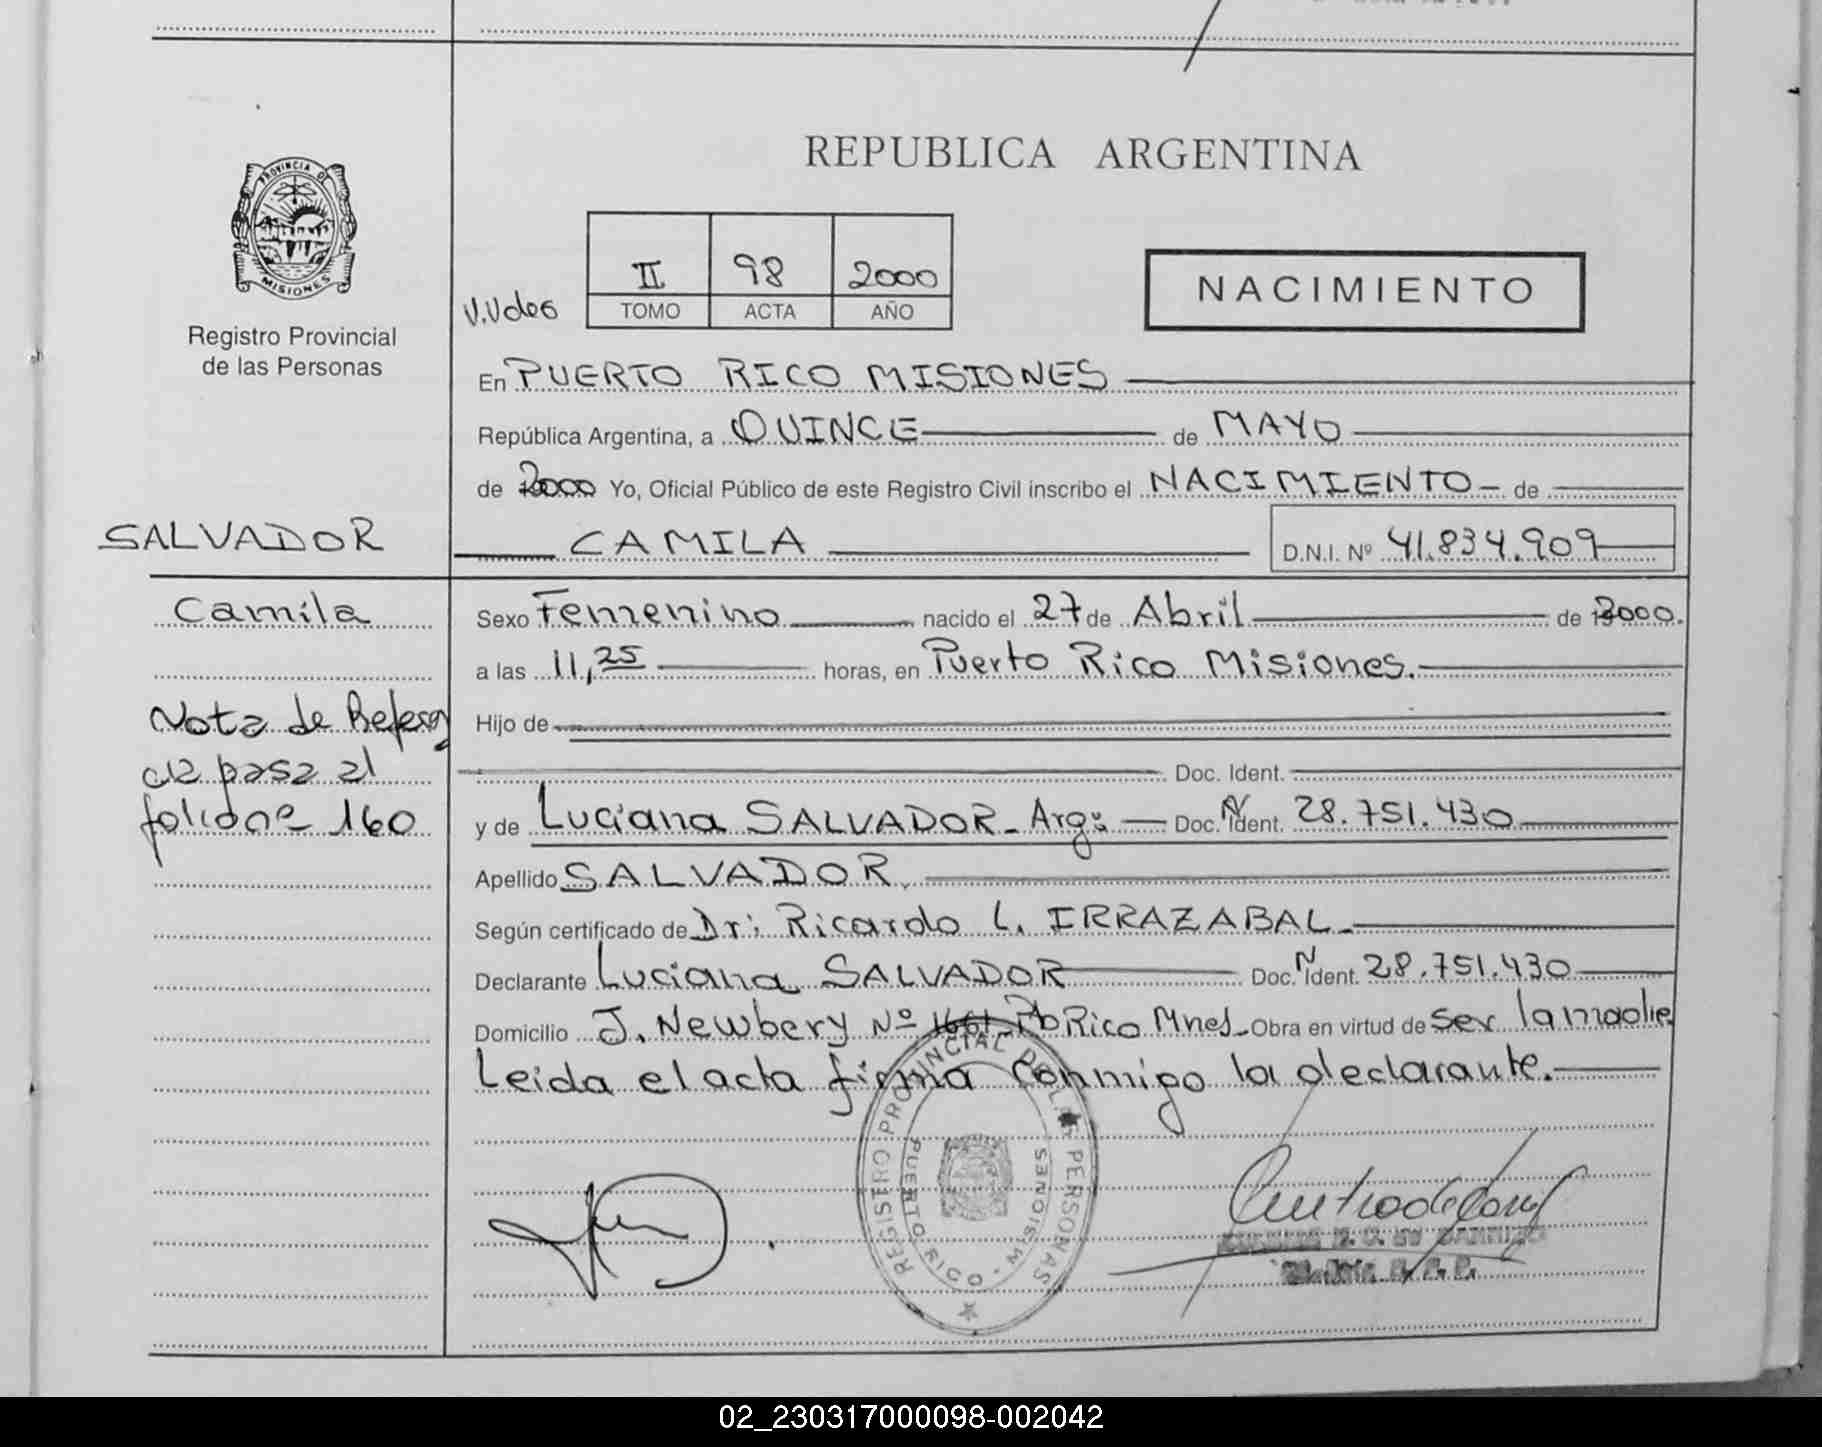 PROVINCIA DE
MISIONES
Registro Provincial
de las Personas
REPUBLICA ARGENTINA
II 98 2000
TOMO ACTA AÑO
NACIMIENTO
En PUERTO RICO MISIONES
República Argentina, a QUINCE de MAYO
de 2000 Yo, Oficial Público de este Registro Civil inscribo el NACIMIENTO de
SALVADOR
CAMILA D.N.I. Nº 41.834.909
Camila
Sexo Femenino nacido el 27 de Abril de 2000.
a las 11,25 horas, en Puerto Rico Misiones.
Nota de Referen
cia pasa al
folio 160
Hijo de
Doc. Ident.
y de Luciana SALVADOR - Arg: Doc. N Ident. 28.751.430
Apellido SALVADOR.
Según certificado de Dr: Ricardo L. IRRAZABAL.
Declarante Luciana SALVADOR Doc. N Ident. 28.751.430
Domicilio J. Newbery Nº 1661 - Pto Rico Mnes - Obra en virtud de ser la madre
Leida el acta firma conmigo la declarante.
REGISTRO PROVINCIAL DE LAS PERSONAS
PUERTO RICO - MISIONES
02_230317000098-002042